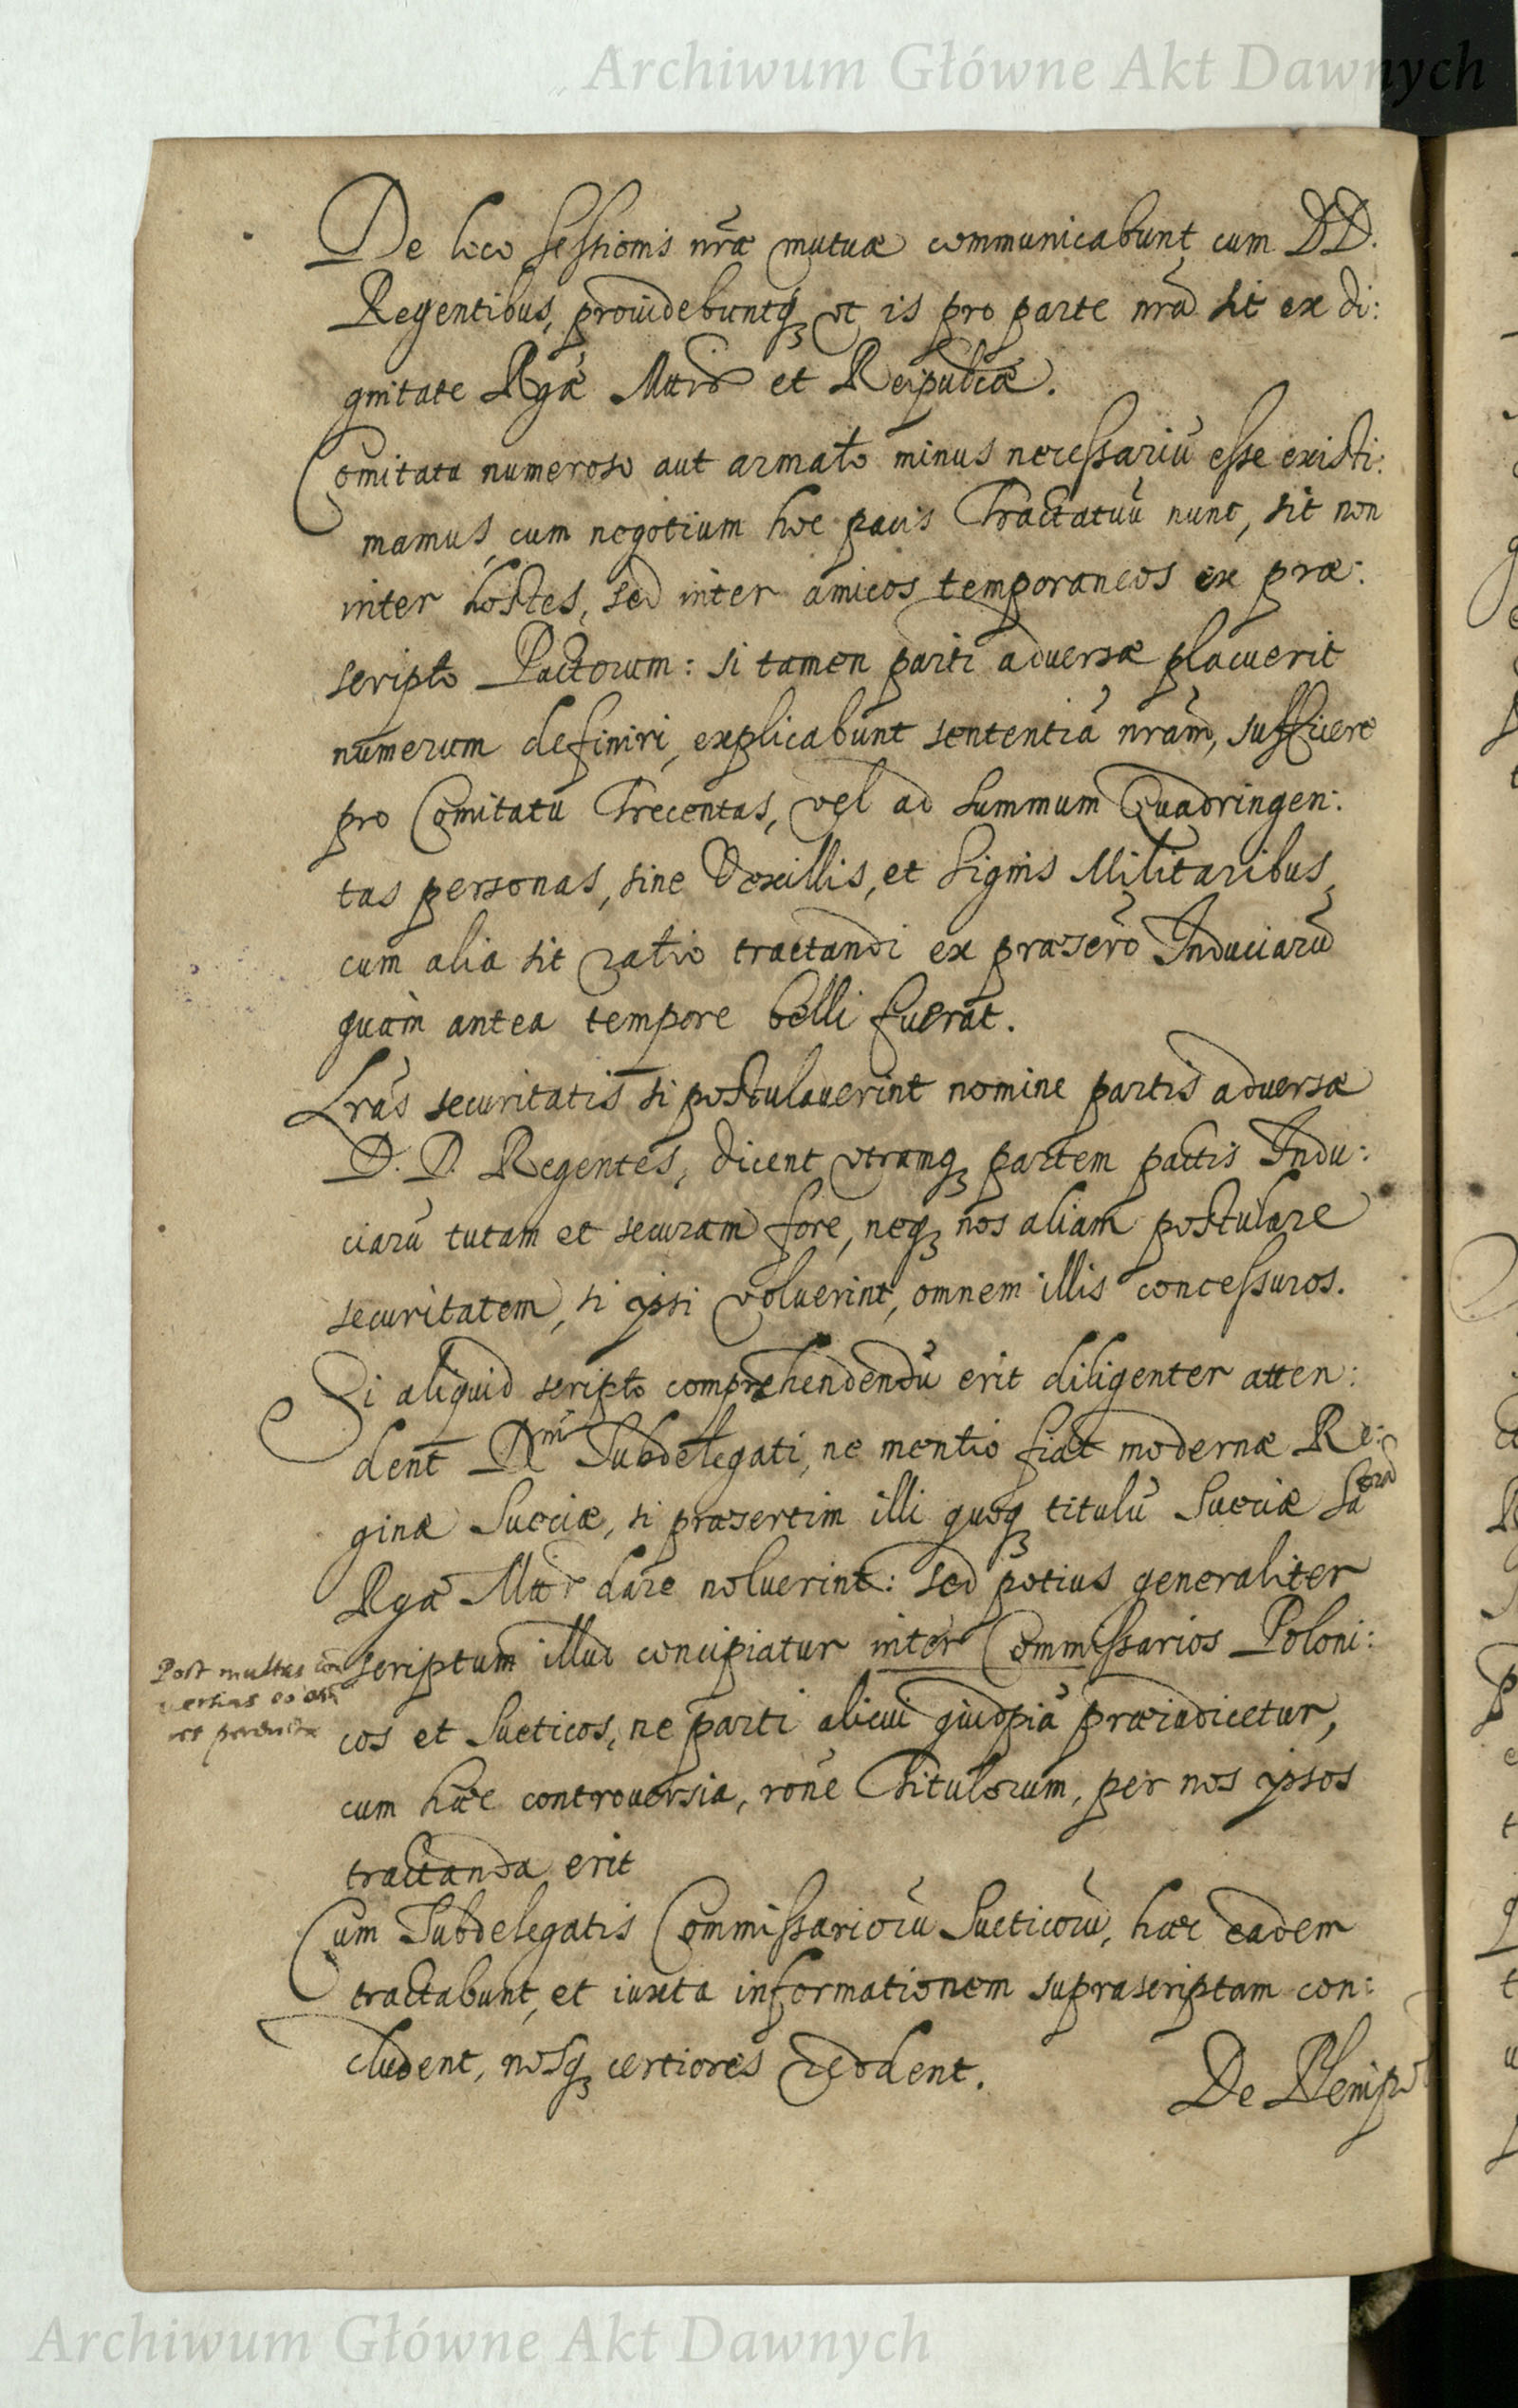 Archiwum Główne Akt Dawnych
De loco sessionis nrãe mutuae communicabunt cum DD.
Regentibus, prouidebuntq; vt is pro parte nrã sit ex di:
gnitate Rgae Mttis et Reipublcae.
Comitatu numeroso aut armato minus necessariũ esse existi:
mamus, cum negotium hoc pacis Tractatuũ nunt, sit non
inter hostes, sed inter amicos temporaneos ex prae:
scripto Pactorum: si tamen parti aduersae placuerit
numerum definiri, explicabunt sententiã nrãm, sufficere
pro Comitatu Trecentas, vel ad summum Quadringen:
tas personas, sine Vexillis, et signis Militaribus,
cum alia sit ratio tractandi ex praescrõ Induciarũ
quàm antea tempore belli fuerat.
Lrãs securitatis si postulauerint nomine partis aduersae
D. D. Regentes, dicent vtramq; partem pactis Indu:
ciarũ tutam et securam fore, neq; nos aliam postulare
securitatem, si ipsi voluerint, omnem illis concessuros.
Si aliquid scripto comprehendendũ erit diligenter atten:
dent Dni Subdelegati, ne mentio fiat modernae Re:
ginae Sueciae, si praesertim illi quoq; titulũ Sueciae Sa
Rgae Mtti dare noluerint: sed potius generaliter
scriptum illud concipiatur inter Commissarios Poloni:
Post multas con
cos et Sueticos, ne parti alicui quidpiã praeiudicetur,
cum haec controuersia, rõne Titulorum, per nos ipsos
tractanda erit
Cum Subdelegatis Commissariorũ Sueticorũ, haec eadem
tractabunt, et iuxta informationem suprascriptam con:
cludent, nosq; certiores reddent.
De Plenipo
Archiwum Główne Akt Dawnych